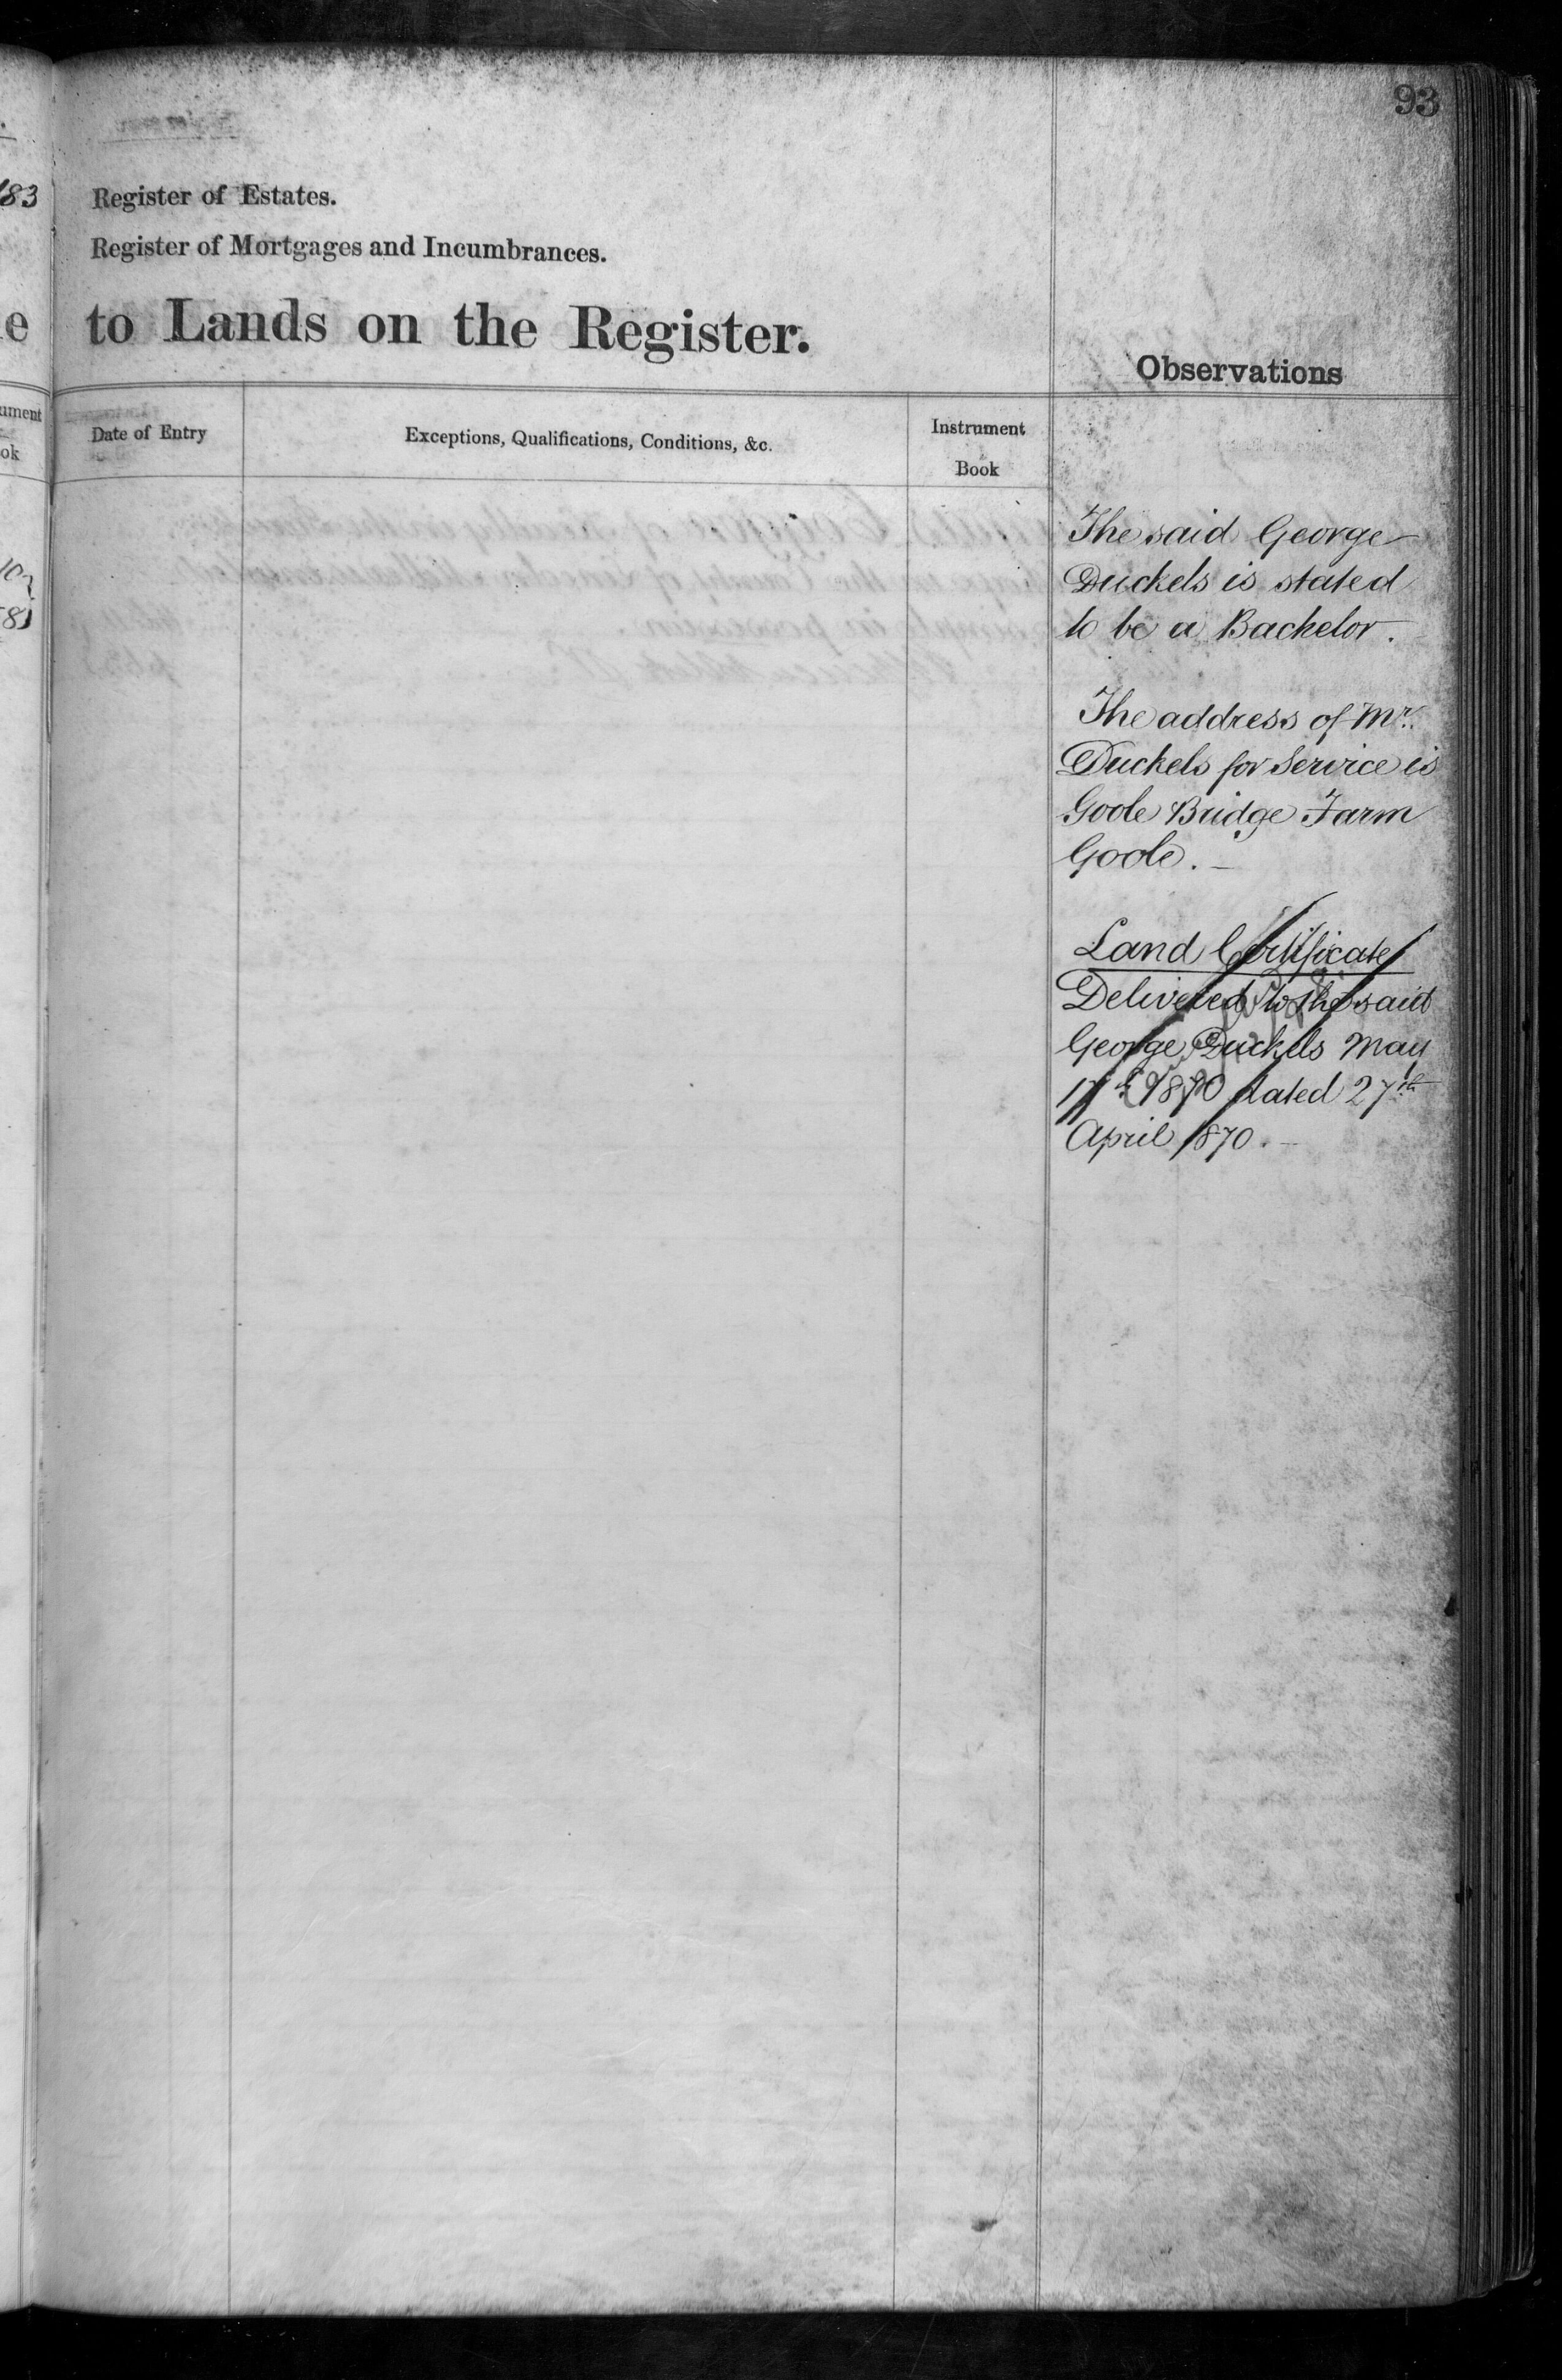 93
183
Register of Estates.
Register of Mortgages and Incumbrances.
e
to Lands on the Register.
Observations
ument
ok
Date of Entry
Exceptions, Qualifications, Conditions, &c.
Instrument
Book
The said George
Duckels is stated
to be a Bachelor.
The address of Mr.
Duckels for Service is
Goole Bridge Farm
Goole. —
Land Certificate
Delivered to the said
George Duckels May
17th 1870 dated 27th
April 1870. —